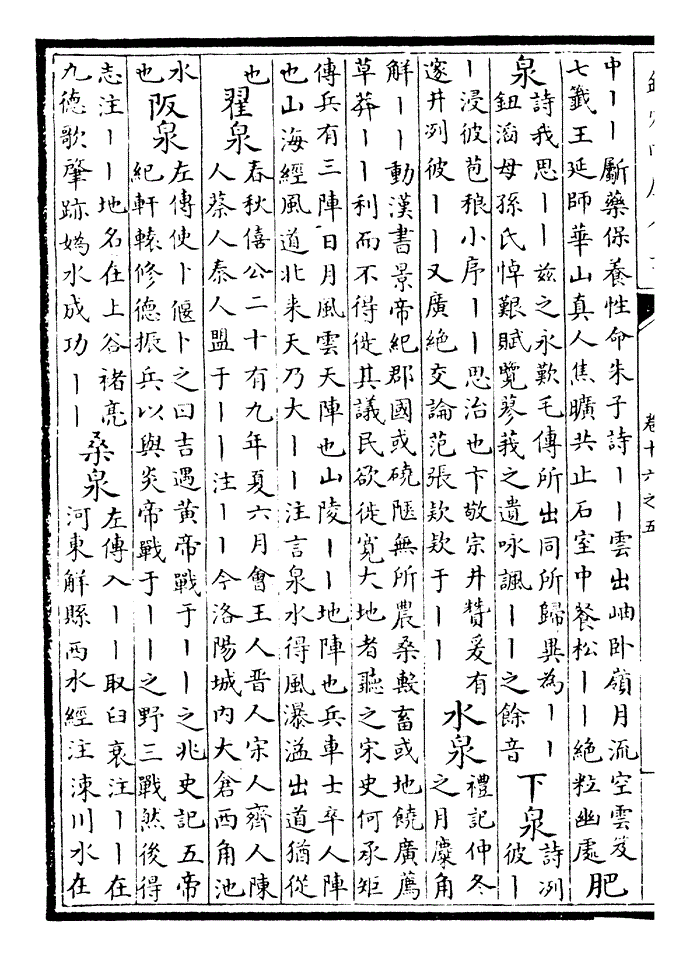 卷十六之五
中丨丨斸藥保養性命朱子詩丨丨雲出岫卧嶺月流空雲笈
七籤王延師華山真人焦曠共止石室中餐松丨丨絶粒幽處
肥
泉
詩我思丨丨兹之永歎毛傳所出同所歸異為丨丨
鈕滔母孫氏悼艱賦覽蓼莪之遺咏諷丨丨之餘音
下泉
詩冽
彼丨
丨浸彼苞稂小序丨丨思治也卞敬宗井贊爰有
邃井冽彼丨丨又廣絶交論范張欵欵于丨丨
水泉
禮記仲冬
之月麋角
解丨丨動漢書景帝紀郡國或磽陿無所農桑㲄畜或地饒廣薦
草莽丨丨利而不得徙其議民欲徙寛大地者聽之宋史何承矩
傳兵有三陣日月風雲天陣也山陵丨丨地陣也兵車士卒人陣
也山海經風道北来天乃大丨丨注言泉水得風瀑溢出道猶從
也
翟泉
春秋僖公二十有九年夏六月會王人晋人宋人齊人陳
人蔡人秦人盟于丨丨注丨丨今洛陽城内大倉西角池
水
也
阪泉
左傳使卜偃卜之曰吉遇黄帝戰于丨丨之兆史記五帝
紀軒轅修徳振兵以與炎帝戰于丨丨之野三戰然後得
志注丨丨地名在上谷褚亮
九徳歌肇跡媯水成功丨丨
桑泉
左傳入丨丨取臼衰注丨丨在
河東解縣西水經注涑川水在